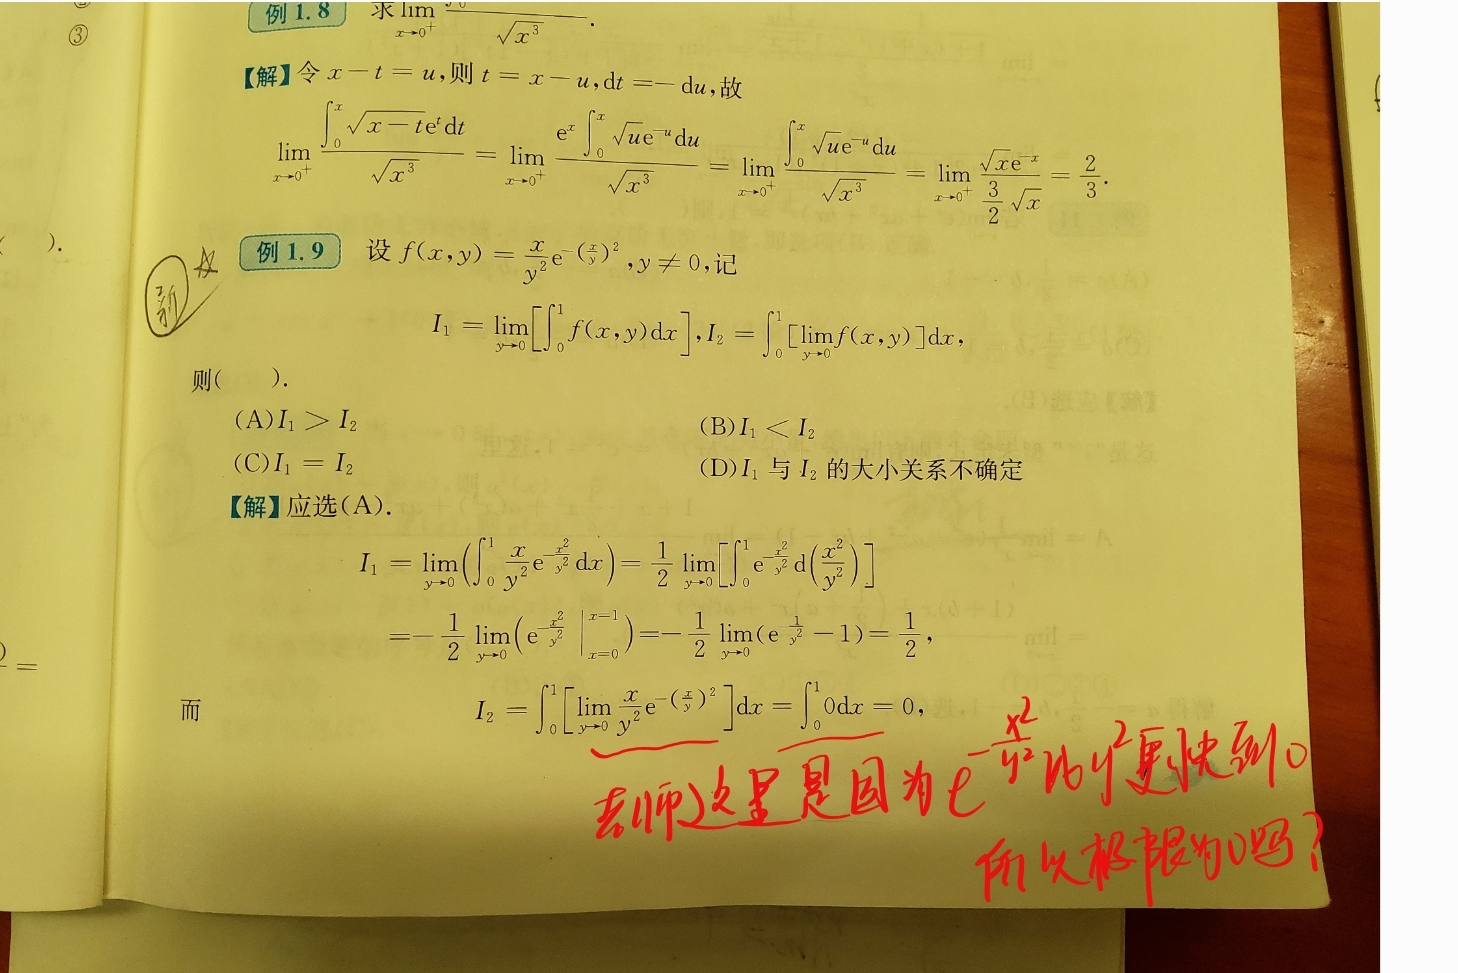 ③
例 1.8 求 lim x→0⁺ √x³ .
【解】令 x－t＝u,则 t＝x－u,dt＝－du,故
lim x→0⁺ ∫₀ˣ √(x－t) eᵗdt / √x³ ＝ lim x→0⁺ eˣ∫₀ˣ √u e⁻ᵘdu / √x³ ＝ lim x→0⁺ ∫₀ˣ √u e⁻ᵘdu / √x³ ＝ lim x→0⁺ √x e⁻ˣ / (3/2 √x) ＝ 2/3.
( ).
新
例 1.9 设 f(x,y)＝x/y² e^(－(x/y)²),y≠0,记
I₁＝lim y→0 [∫₀¹ f(x,y)dx],I₂＝∫₀¹ [lim y→0 f(x,y)]dx,
则( ).
(A)I₁＞I₂ (B)I₁＜I₂
(C)I₁＝I₂ (D)I₁ 与 I₂ 的大小关系不确定
【解】应选(A).
I₁＝lim y→0 (∫₀¹ x/y² e^(－x²/y²) dx)＝1/2 lim y→0 [∫₀¹ e^(－x²/y²) d(x²/y²)]
＝－1/2 lim y→0 (e^(－x²/y²) | x=1 x=0)＝－1/2 lim y→0 (e^(－1/y²)－1)＝1/2,
＝
而 I₂＝∫₀¹ [lim y→0 x/y² e^(－(x/y)²)]dx＝∫₀¹ 0dx＝0,
老师这里是因为 e^(－x²/y²) 比 y² 更快到0
所以极限为0吗?